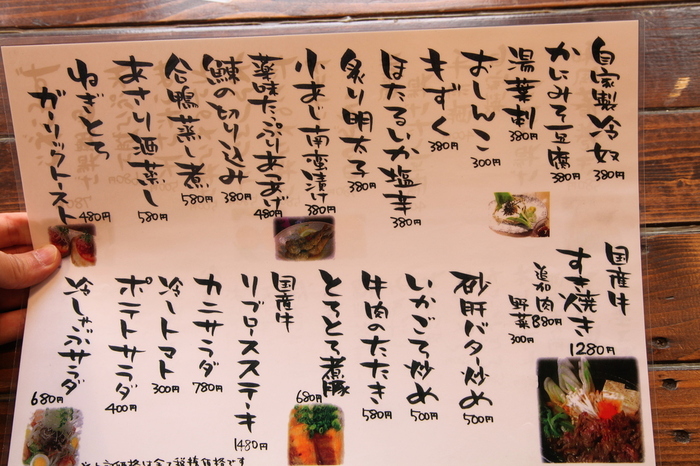 自家製冷奴 380円
かにみそ豆腐 380円
湯葉刺 380円
おしんこ 300円
もずく 380円
ほたるいか塩辛 380円
炙り明太子 380円
小あじ南蛮漬け 380円
薬味たっぷりあつあげ 480円
鰊の切り込み 380円
合鴨蒸し煮 580円
あさり酒蒸し 580円
ねぎとろガーリックトースト 480円
国産牛
すき焼き 1280円
追加 肉 880円
野菜 300円
砂肝バター炒め 500円
いかごろ炒め 500円
牛肉のたたき 580円
とろとろ煮豚 680円
国産牛
リブロースステーキ 1480円
カニサラダ 780円
冷しトマト 300円
ポテトサラダ 400円
冷しゃぶサラダ 680円